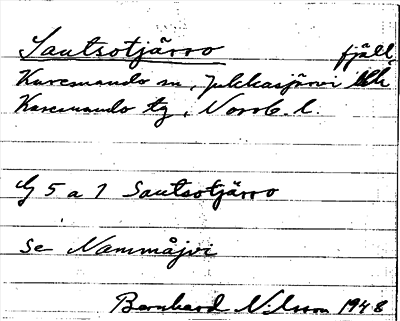 Sautsotjårro fjäll.
Karesuando sn, Jukkasjärvi
Karesuando tg, Norrb. l.
G 5 a 1 Sautsotjårro
Se Nammåjvi
Bernhard Nilsson 1948